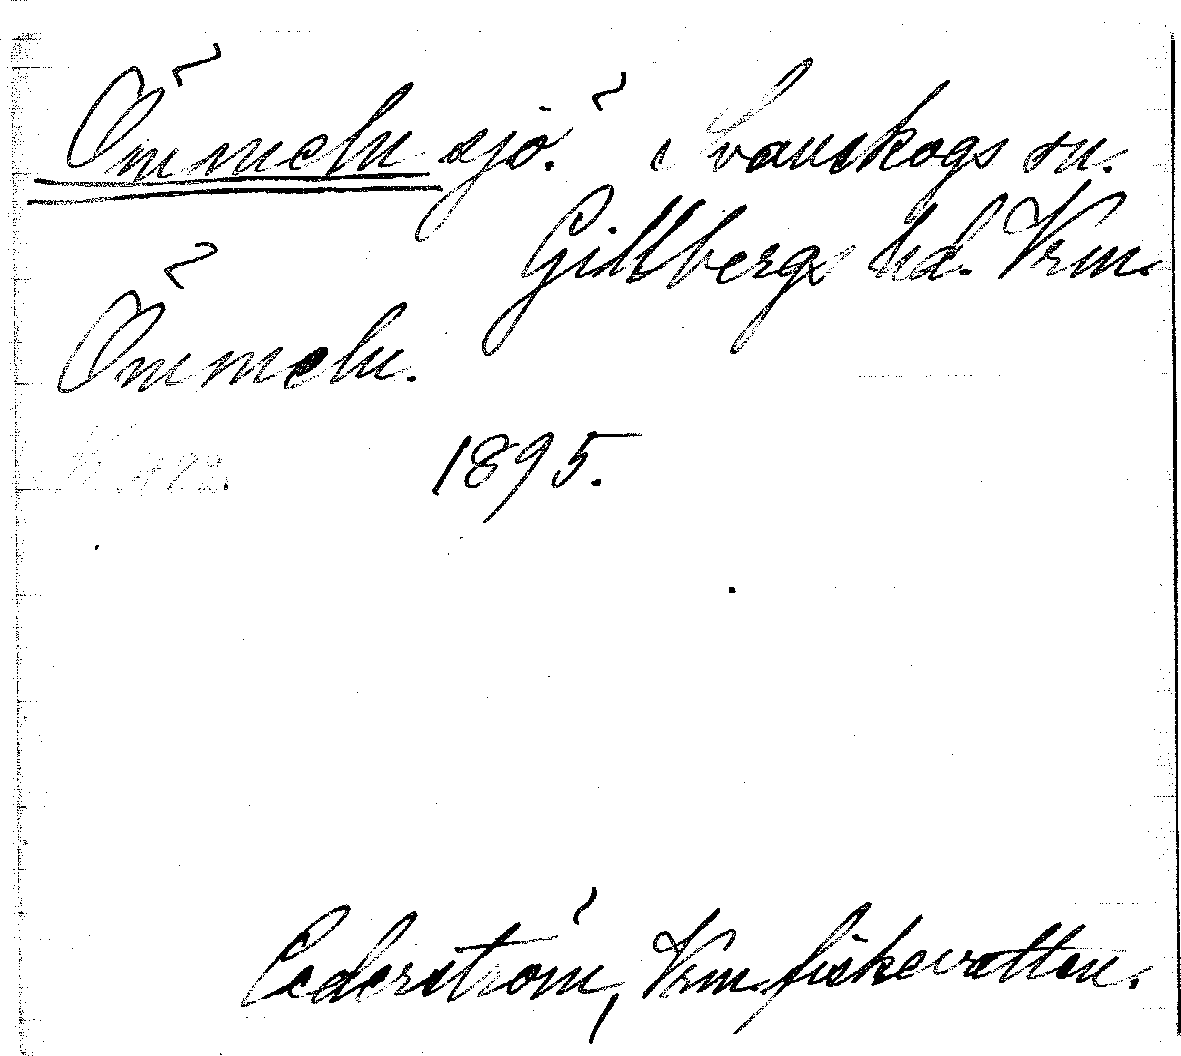 Ömmeln sjö. Svanskogs sn.
Gillbergs hd. Vrm.
Ömmeln.
1895.
Cederström, Vrm fiskevatten.